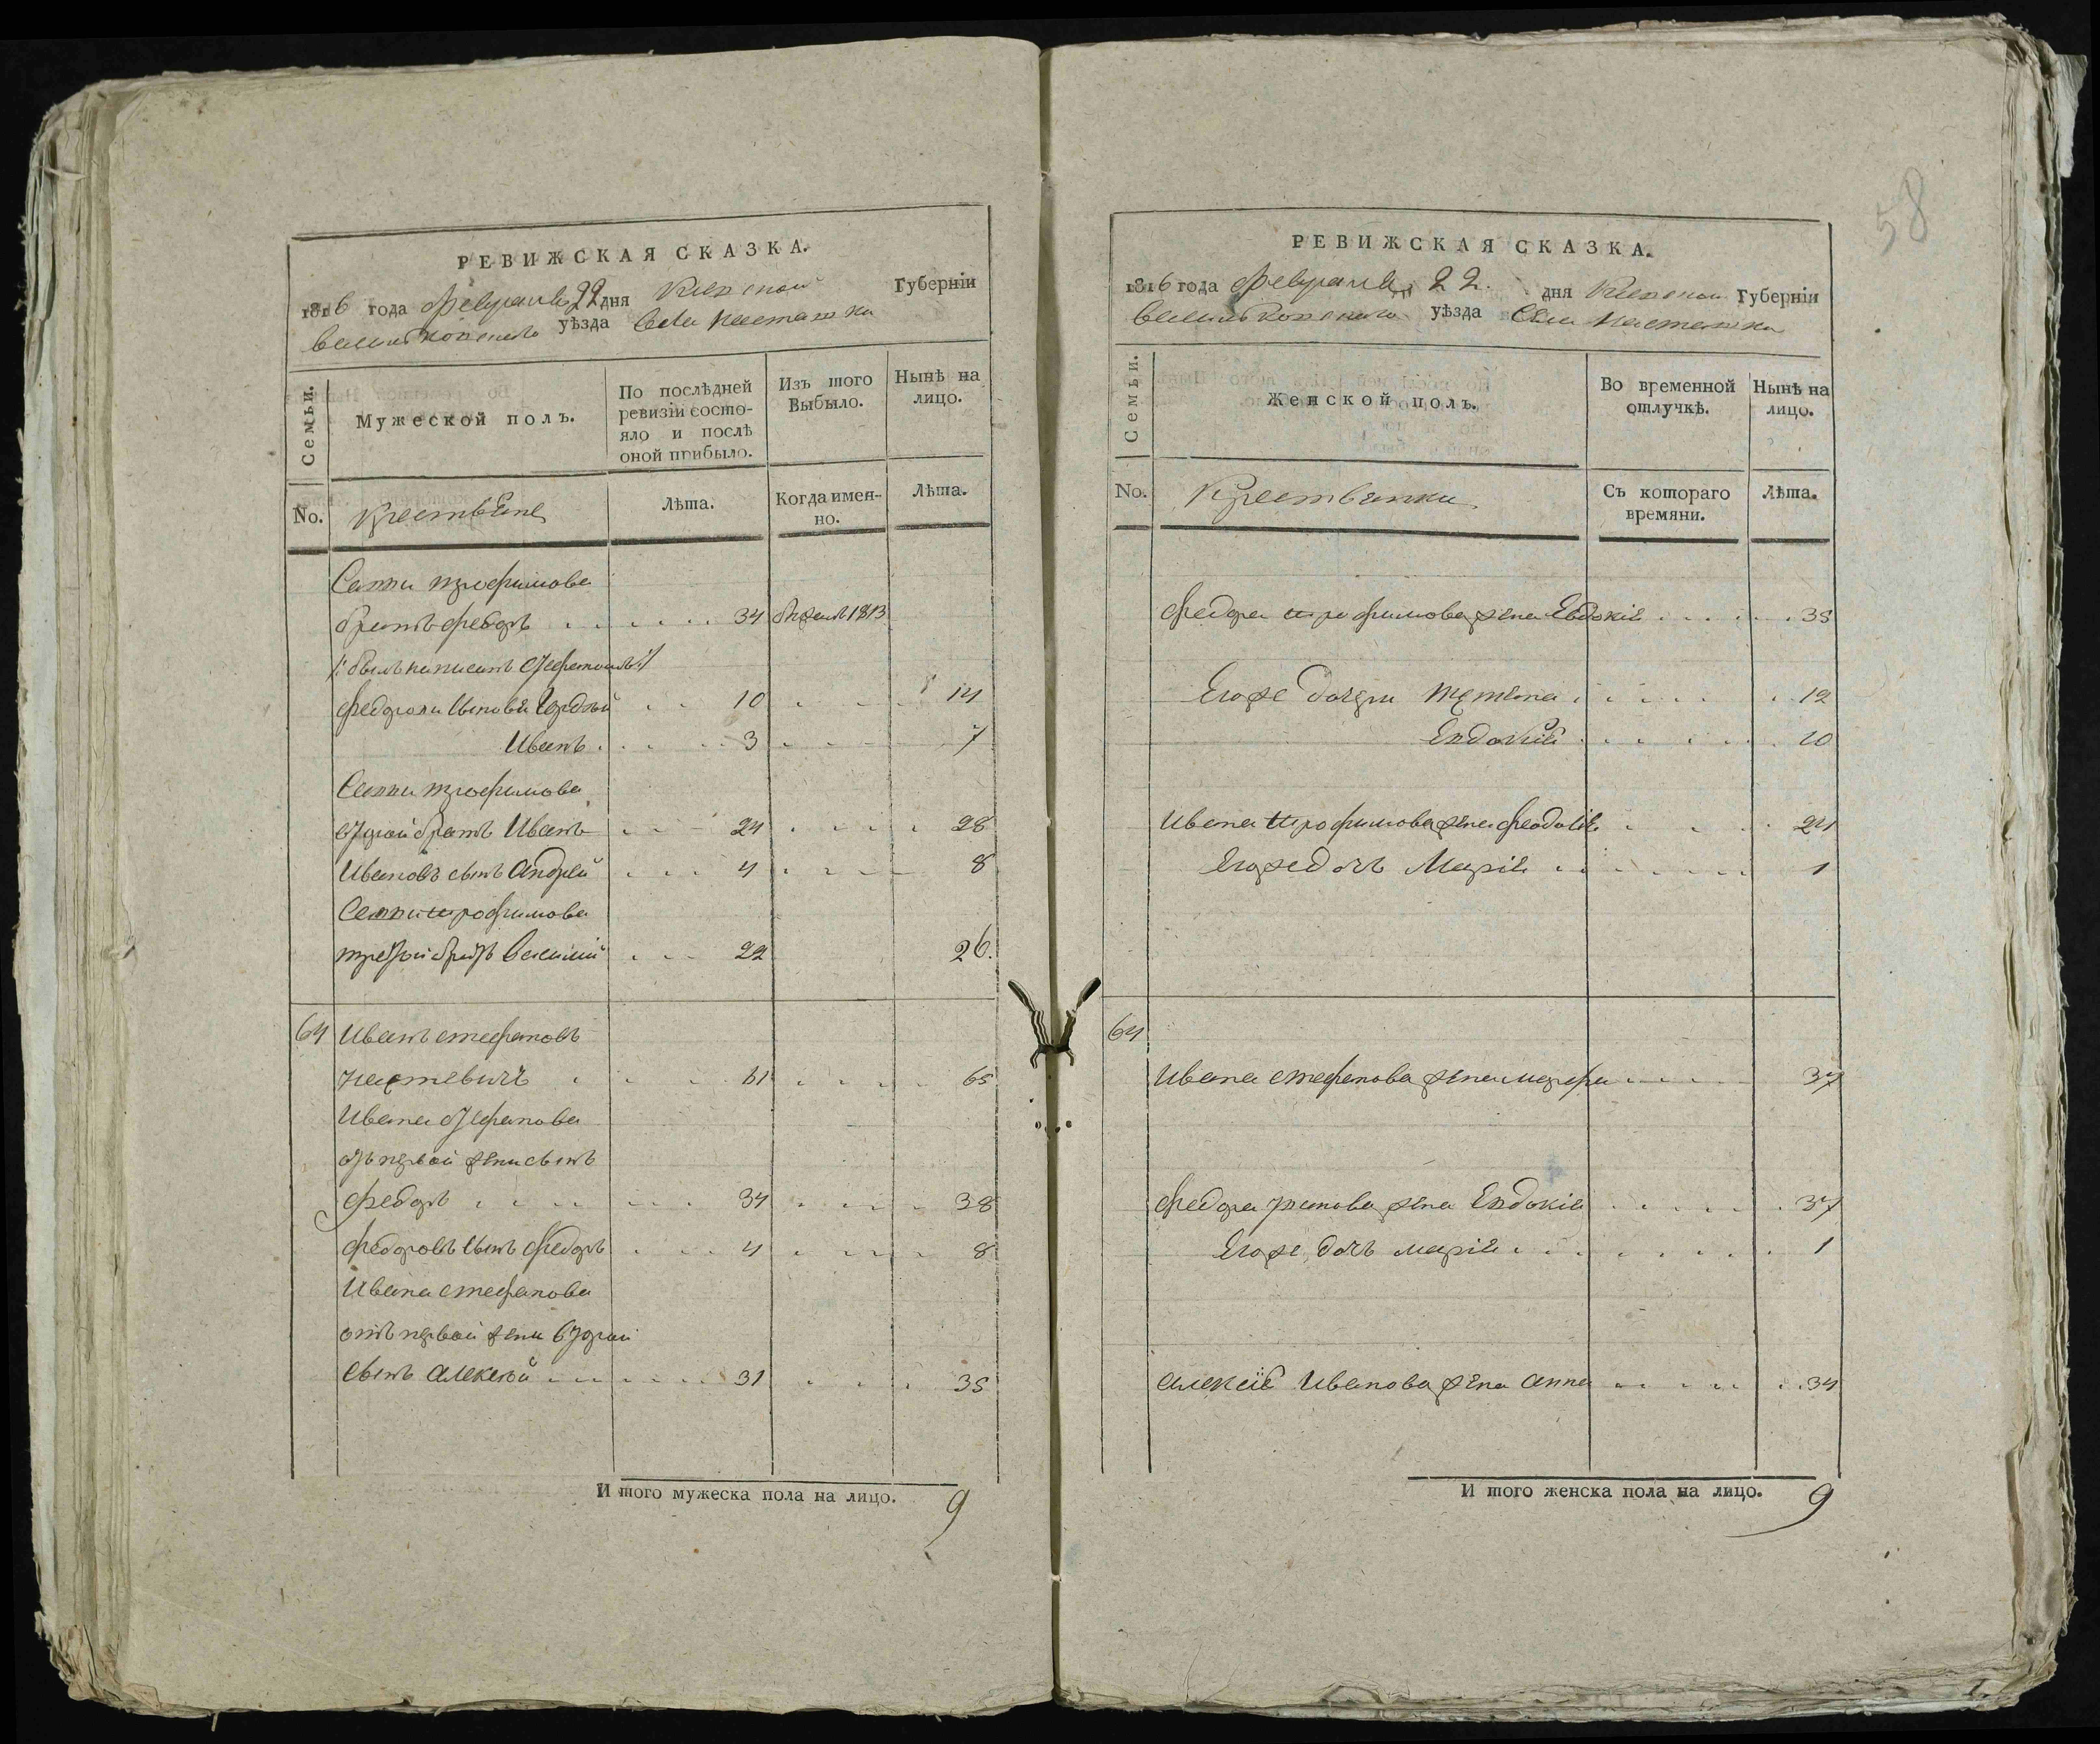 РЕВИЖСКАЯ СКАЗКА.
1816 года Февраля 22 дня Киевской Губернїи
Васильковского уѣзда Села Насташки
Семьи.
Мужеской полъ.
По послѣдней
ревизїи состо-
яло и послѣ
оной прибыло.
Изъ того
Выбыло.
Нынѣ на
лицо.
No.
Крестьяне
Лѣта.
Когда имен-
но.
Лѣта.
трофимова
братъ федоръ 34 1813
написанъ
федора сыновья 10 14
Иванъ 3 7
трофимова
второй братъ Иванъ 24 28
Ивановъ сынъ Андрей 4 8
трофимова
третой братъ Василий 22 26.
64 Иванъ стефановъ
61 65
Ивана стефанова
отъ первой жени сынъ
федоръ 34 38
федоровъ сынъ федоръ 4 8
Ивана стефанова
отъ первой жени второй
сынъ алексей 31 35
И того мужеска пола на лицо. 9
58
РЕВИЖСКАЯ СКАЗКА.
1816 года Февраля 22. дня Киевской Губернїи
Васильковского уѣзда Села Насташки
Семьи.
Женской полъ.
Во временной
отлучкѣ.
Нынѣ на
лицо.
No.
Крестьянки
Съ котораго
времяни.
Лѣта.
федора трофимова жена Евдокія 35
Егоже дочери 12
Евдокія 10
Ивана трофимова жена феодосія 24
Егоже дочь Марія 1
64
Ивана стефанова жена марфа 37
федора Иванова жена Евдокія 37
Егоже дочь марія 1
алексіѣ Иванова жена анна 34
И того женска пола на лицо. 9